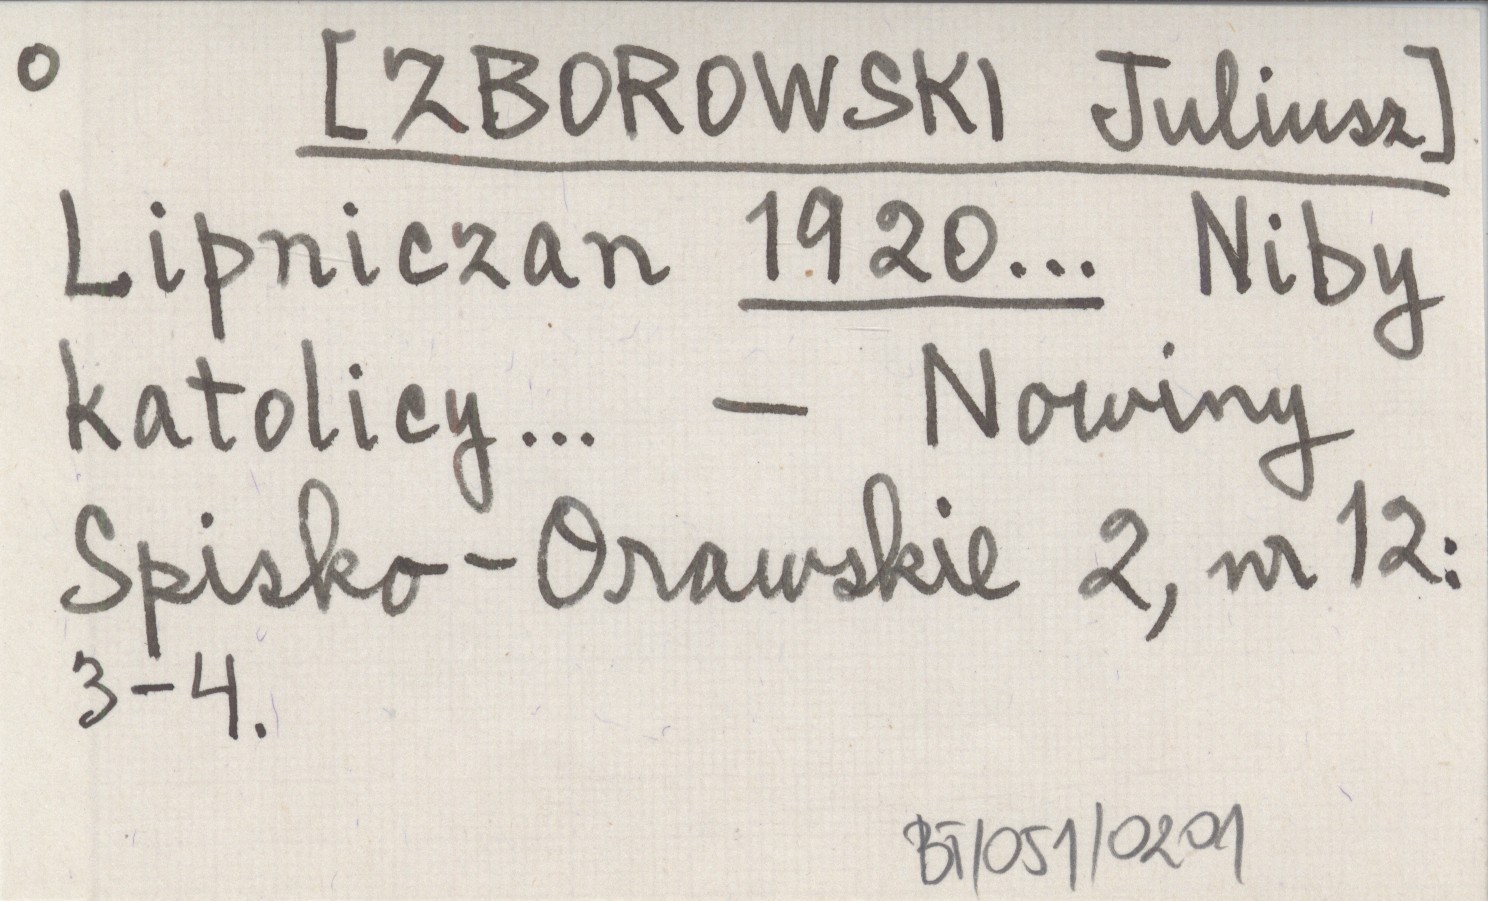 o [ZBOROWSKI Juliusz]
Lipniczan 1920... Niby
katolicy... — Nowiny
Spisko-Orawskie 2, nr 12:
3-4.
BT/051/0201